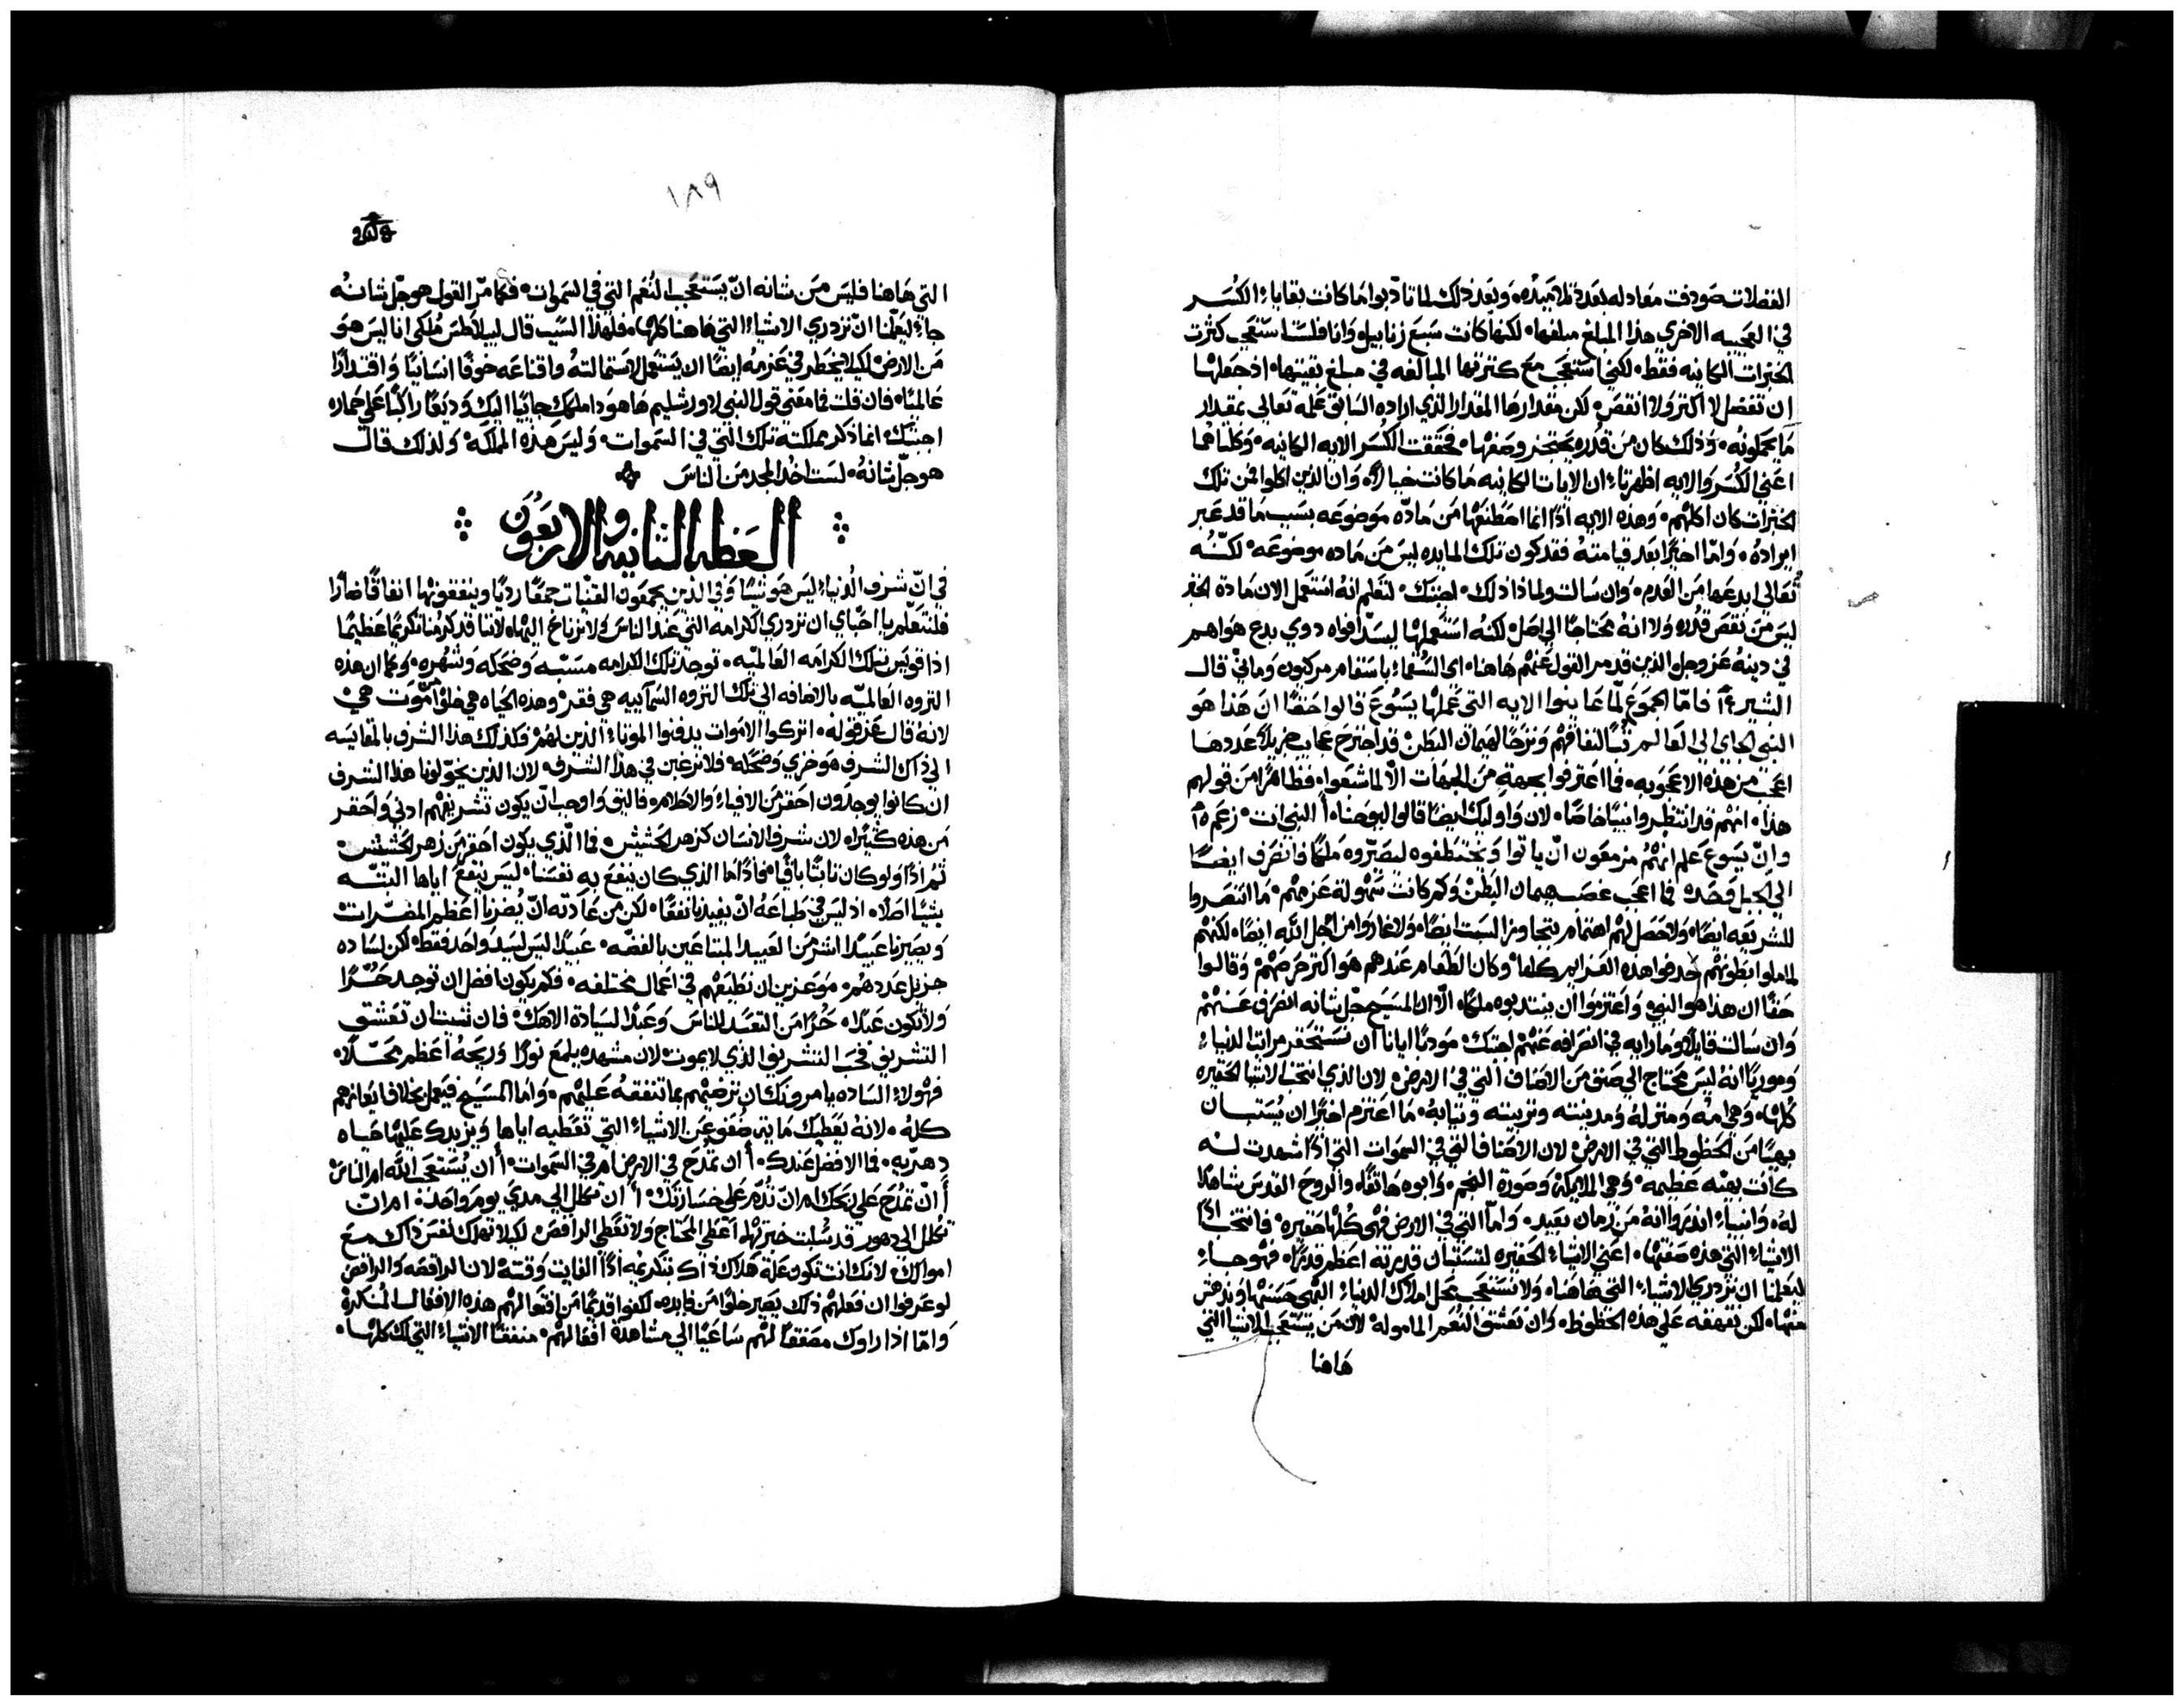 الفضلات صودفت معادله بعدة تلاميده وبعد ذلك لما تادبوا ما كانت بقايا الكسر
في العجيبه الاخري هذا المبلغ مبلغها لكنها كانت سبع زنابيل وانا فلست استعجب كثرت
الخبزات الكاينه فقط لكني استعجب مع كثرتها المبالغه في مبلغ بقيتها اذ جعلها
ان تفضل لا اكثر ولا انقص لكن مقدارها المقدار الذي اراده السابق علمه تعالي بمقدار
ما يحملونه وذلك كان من قدره يعجز وصفها فحققت الكسر الايه الكاينه وكلتاهما
اعني الكسر والايه اظهرتا ان الايات الكاينه ما كانت خيالاً وان الذين اكلوا فمن تلك
الخبزات كان اكلهم وهذه الايه اذاً انما اصطنعها من مادّه موضوعه بسبب ما قد عبر
ايراده وامّا اخيراً بعد قيامته فقد كون تلك المايده ليس من ماده موضوعه لكنّه
تعالي ابدعها من العدم وان سالت ولماذا ذلك اجبتك لتعلم انه استعمل الان مادة الخبز
ليس من نقص قدره ولا انه محتاجاً الي اصل لكنه استعملها ليسدّ افواه دوي بدع هواهم
في دينه عز وجل الذين قد مر القول عنهم هاهنا اي السقماء باسقام مركيون وماني قال
البشير فامّا الجموع لمّا عاينوا الايه التي عملها يسوع قالوا حقاً ان هذا هو
النبي الجاي الي العالم
اعجب من هذه الاعجوبه فما اعترفوا بجهة من الجهات الا لما شبعوا فظاهراً من قولهم
هذا انهم قد انتظروا نبياً خاصاً لان اوليك ايضاً قالوا ليوحنا أ النبي انت زعم
وانّ يسوع علم انهم مزمعون انّ ياتوا ويختطفوه ليصيّروه ملكاً فانصرف ايضاً
الي الجبل وحده فما اعجب غصب هيمان البطن وكم كانت سهولة عزمهم ما انتصروا
للشريعه ايضاً ولا حصل لهم اهتمام بتجاوز السبت ايضاً ولا غاروا من اجل الله ايضاً لكنهم
لما ملوا بطونهم حدفوا هذه الغزاير كلها وكان الطعام عندهم هو اكثر حرصهم وقالوا
حقاً ان هذا هو النبي واعتزموا ان ينتدبوه ملكاً الّا ان المسيح جلّ شانه انصرف عنهم
وان سالت قايلاً وما رايه في انصرافه عنهم اجبتك مودباً ايانا ان نستحقر مراتب الدنيا
ومورياً انه ليس محتاج الي صنف من الاصناف التي في الارض لان الذي انتخب الاشيا الحقيره
كلها وهي امّه ومنزله ومدينته وتربيته وثيابه ما اعتزم اخيراً ان يستبان
بهياً من الحظوظ التي في الارض لان الاصناف التي في السموات التي اذاً شهدت له
كانت بهيّه عظيمه وهي الملايكه وصورة النجم وابوه هاتفاً والروح القدس شاهداً
له وانبياء انذروا انه من زمان بعيد وامّا التي في الارض فهي كلها حقيره فانتخب اذاً
الاشياء التي هذه صفتها اعني الاشياء الحقيره لتستبان قدرته اعظم قدراً فهو جاء
ليعلمنا ان نزدري الاشياء التي هاهنا ولا نستعجب محل املاك الدنيا البهي حسنها وندهش
منها لكن نقهقه علي هذه الحظوظ وان نعشق النعم المامولة لان من يستعجب الاشيا التي
هاهنا
١٨٩
التي هاهنا فليس من شانه انّ يستعجب النعم التي في السموات فكما مرّ القول هو جلّ شانه
جاء ليعلّمنا انّ نزدري الاشياء التي هاهنا كلها فلهذا السبب قال لبيلاطس مُلكي انا ليس هو
من الارض لكيلا يخطر في عزمه ايضاً ان يستعمل لاستمالته واقناعه خوفاً انسانياً واقتداراً
عالمياً فان قلت فما معني قول النبي لاورشليم هاهوذا ملكك جايياً اليك وديعاً راكباً علي حماره
اجبتك انما ذكر مملكته تلك التي في السموات وليس هذه المملكه ولذلك قال
هو جلّ شانه لست اخد المجد من الناس
العظه الثانيه والاربعون
في انّ شرف الدنيا ليس هو شيئاً وفي الذين يجمعون القنيات جمعاً ردياً وينفقونها انفاقاً ضاراً
فلنتعلّم يا احبّاي ان نزدري الكرامه التي عند الناس ولا نرتاح اليها لاننا قد كرمنا تكريماً عظيماً
اذا قويس بتلك الكرامه العالميّه توجد تلك الكرامه مسبّه وضحكه وشهره وكما ان هذه
الثروه العالميّه بالاضافه الي تلك الثروه السمآييه هي فقر وهذه الحياه هي خلوّاً من موت هي
لانه قال عز قوله اتركوا الاموات يدفنوا الموتاء الذين لهم وكذلك هذا الشرف بالمقايسه
الي ذاك الشرف هو خزي وضحكه فلا نرغبن في هذا الشرف لان الذين يخوّلونا هذا الشرف
ان كانوا يوجدون احقر من الافياء والاحلام فاليق واوجب انّ يكون تشريفهم ادني واحقر
من هذه كثيراً لان شرف الانسان كزهر الحشيش فما الّذي يكون احقر من زهر الحشيش
ثم اذاً ولو كان ثابتاً باقياً فماذاً ما الذي كان ينفع به نفسنا ليس ينفع اياها البتّه
بشياً اصلاً اذ ليس في طباعه انّ يفيدنا نفعاً لكن من عادته انّ يضرنا اعظم المضرات
ويصيرنا عبيداً اشر من العبيد المبتاعين بالفضّه عبيداً ليس لسيد واحد فقط لكن لساده
جزيل عددهم موعزين ان نطيعهم في اعمال مختلفه فكم يكون افضل ان توجد حرّاً
ولا تكون عبداً حرّاً من التعبّد للناس وعبداً لسيادة الاهك فان شيت ان تعشق
التشريف فحب التشريف الذي لا يموت لان مشهده يلمع نوراً وربحه اعظم محلّاً
فهولاء الساده يامرونك ان ترضيهم بما تنفقه عليهم واما المسيح فيعمل بخلاف ايعازهم
كله لانه يعطيك ماية ضعف عن الاشياء التي تعطيه اياها ويزيدك عليها حياه
دهريه فما الافضل عندك أ ان تمدح في الارض ام في السموات أ ان يستعجب الله ام الناس
أ انّ تمدح علي ربحك ام انّ تذمّ علي خسارتك أ ان تكلل الي مدي يوم واحد ام ان
تكلل الي دهور اعطي المحتاج ولا تعطي الراقص لكيلا تهلك نفس ذاك مع
اموالك لانك انت تكون علة هلاك
لو عرفوا ان فعلهم ذلك يصير خلوّاً من فايده لكفوا قديماً من افتعالهم هذه الافعال المنكرة
وامّا اذا راوك مصفقاً لهم ساعياً الي مشاهدة افعالهم منفقاً الاشياء التي لك كلها